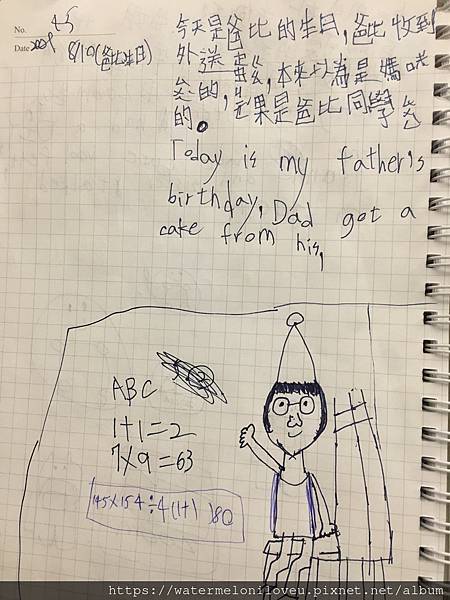 No. 45
Date 2021 8/10(爸比生日)
今天是爸比的生日,爸比收到
外送蛋糕,本來以為是媽咪
送的,結果是爸比同學送
的。
Today is my father's
birthday, Dad got a
cake from his,
ABC
1+1=2
7×9=63
145×154÷4(1+1)80
https://watermeloniloveu.pixnet.net/album